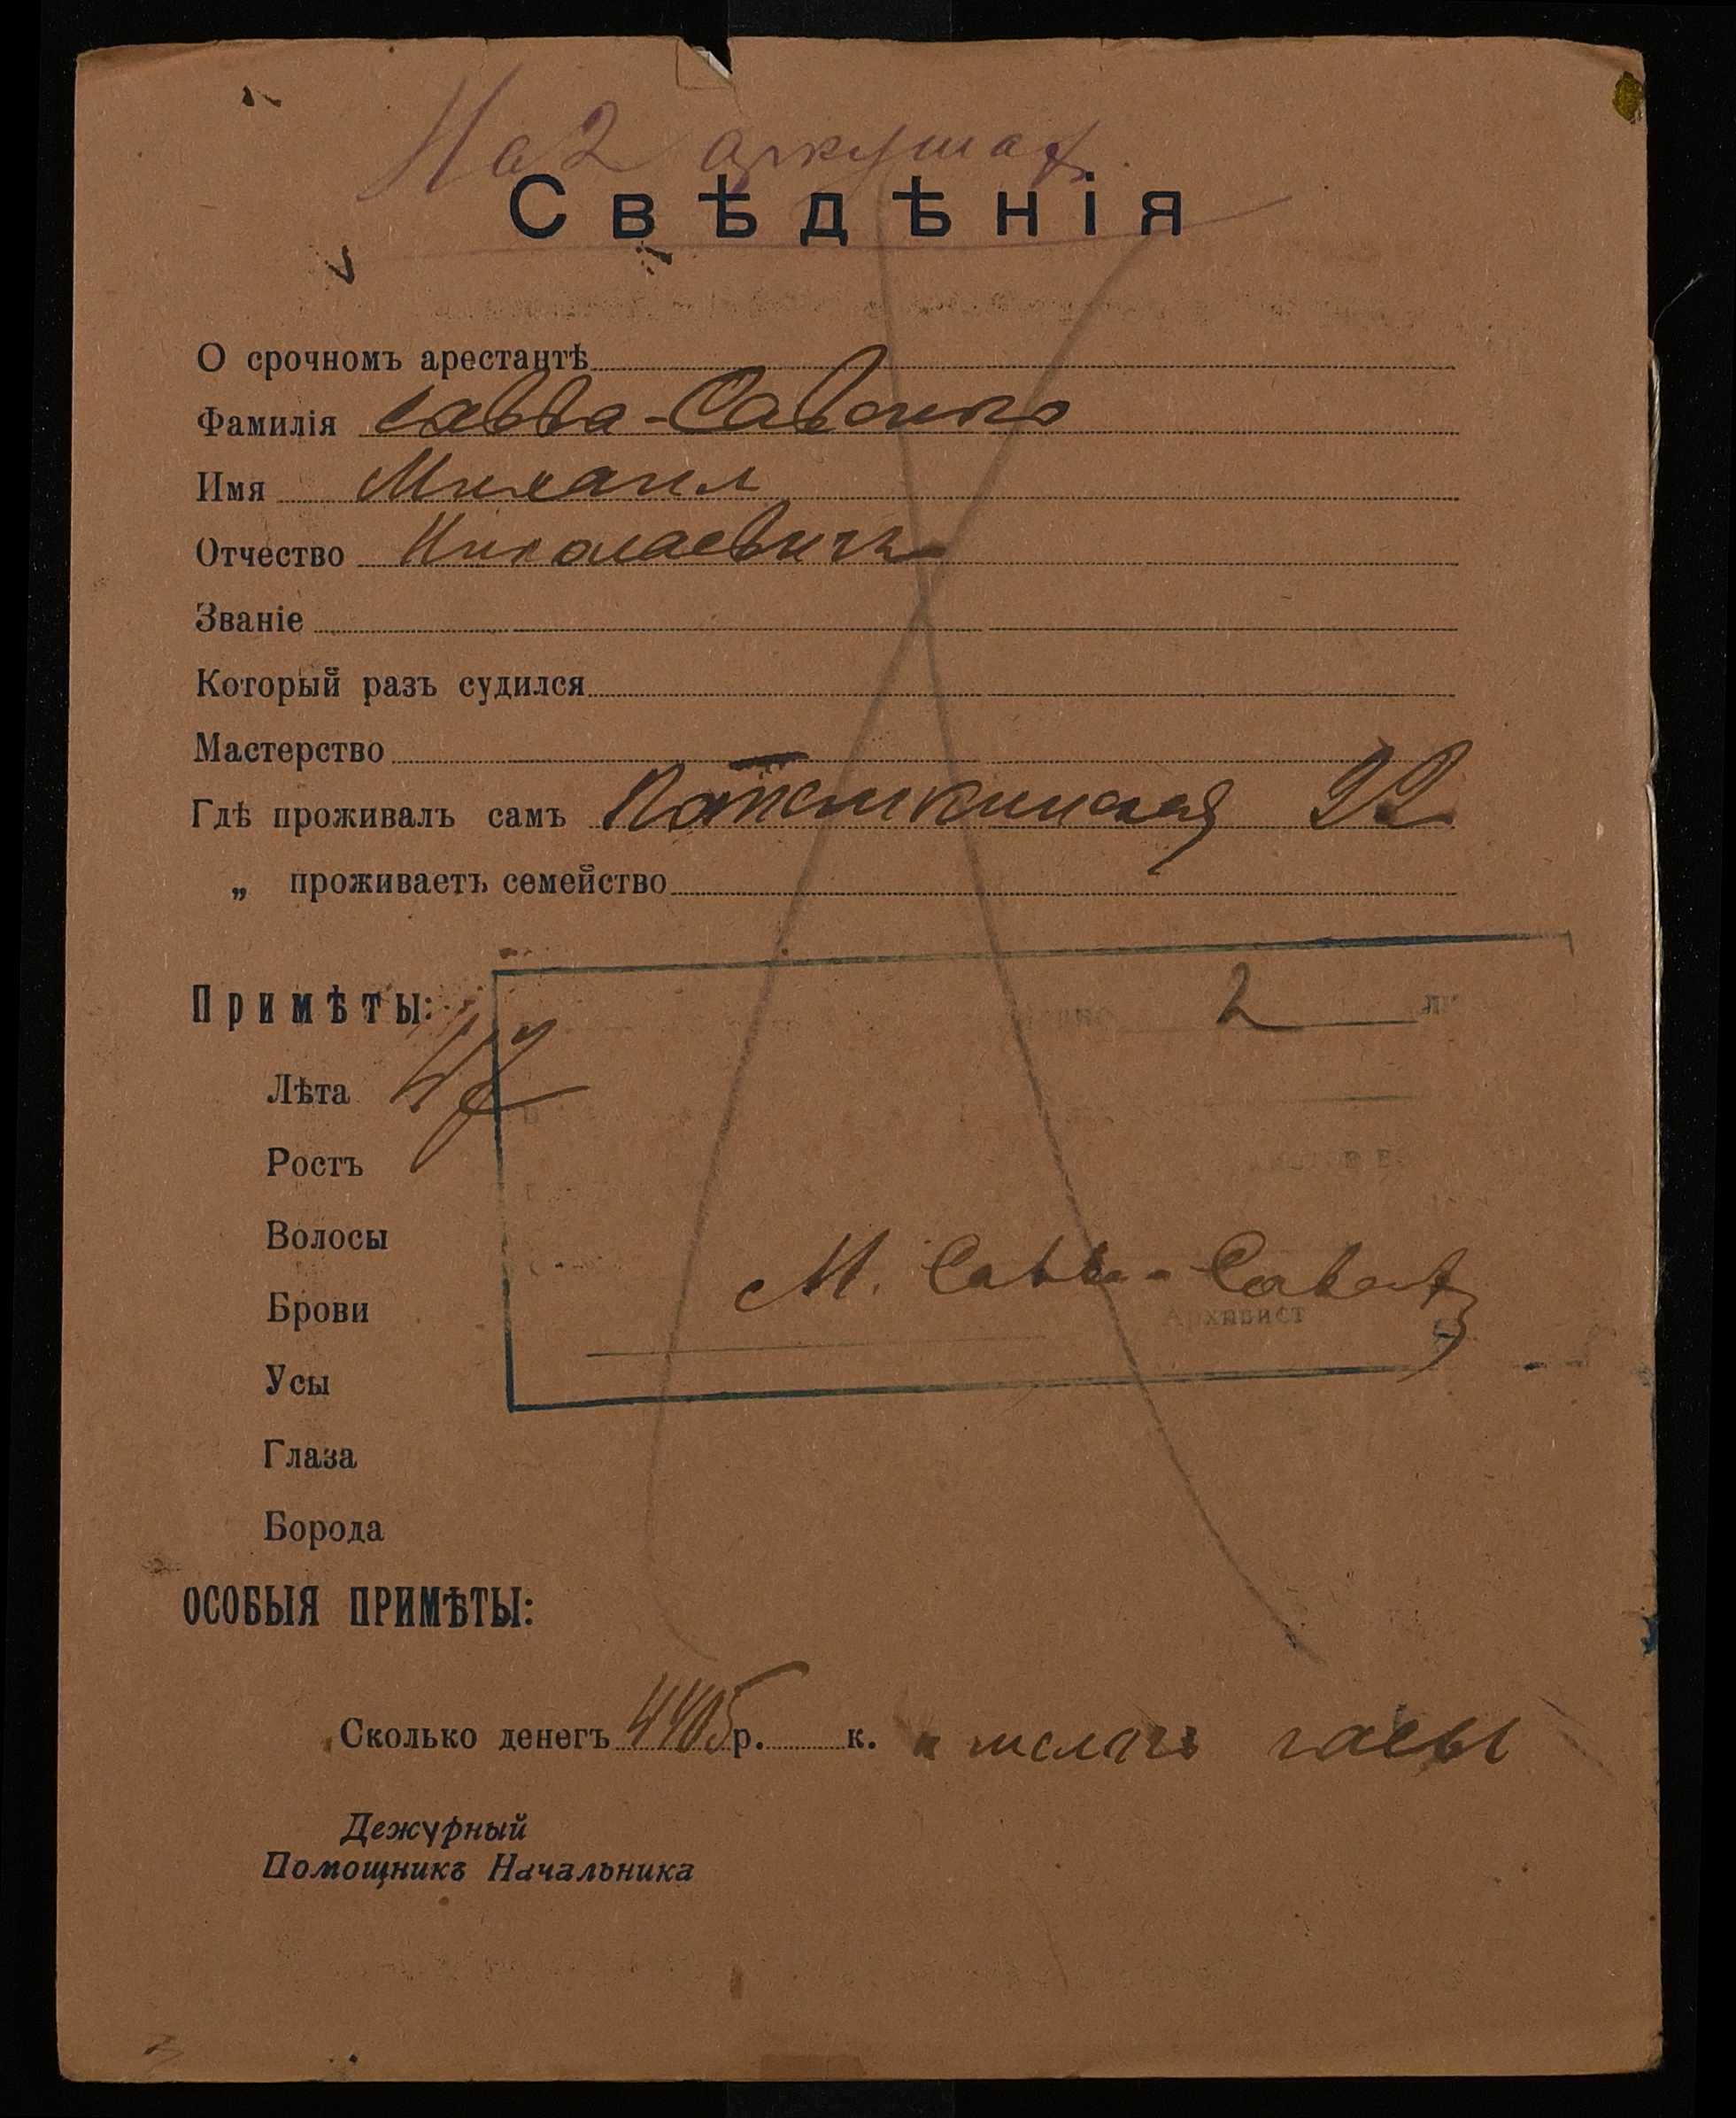 На 2 аркушах.
Свѣдѣнія
О срочномъ арестантѣ
Фамилія Савва-Савенко
Имя Михаил
Отчество Николаевичъ
Званіе
Который разъ судился
Мастерство
Гдѣ проживалъ самъ Потемкинская 22
„ проживаетъ семейство
Примѣты:
2
Лѣта 47
Ростъ
Волосы
М. Савва-
Брови
Архивист
Усы
Глаза
Борода
ОСОБЫЯ ПРИМѢТЫ:
Сколько денегъ 4405 р. к. и часы
Дежурный
Помощникъ Начальника